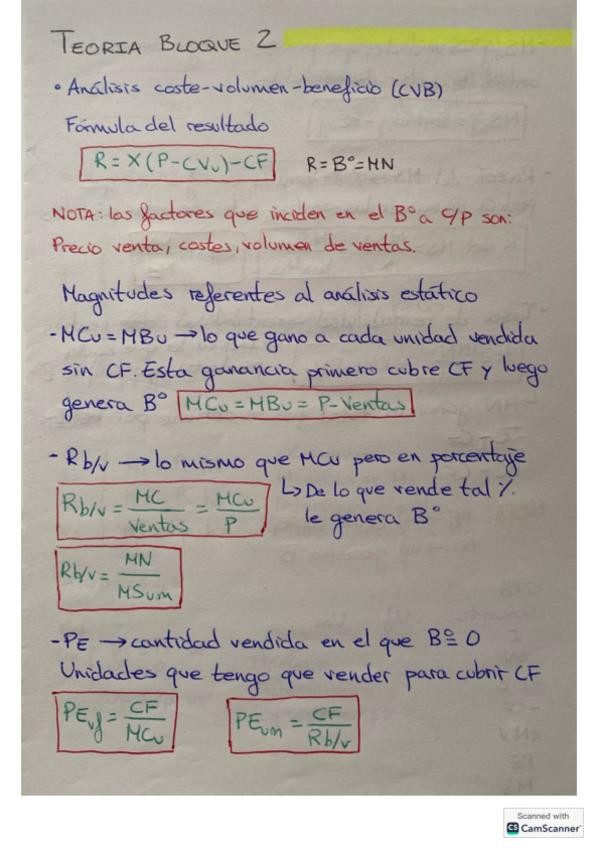 TEORIA BLOQUE 2
• Análisis coste-volumen-beneficio (CVB)
Fórmula del resultado
R = X(P-CVu)-CF R=Bº=MN
NOTA: los factores que inciden en el Bº a C/P son:
Precio venta, costes, volumen de ventas.
Magnitudes referentes al análisis estático
- MCu = MBu → lo que gano a cada unidad vendida
sin CF. Esta ganancia primero cubre CF y luego
genera Bº MCu = MBu = P-Ventas
- Rb/v → lo mismo que MCu pero en porcentaje
Rb/v = MC/Ventas = MCu/P ↳ De lo que vende tal %
le genera Bº
Rb/v = MN/MSum
- PE → cantidad vendida en el que Bº = 0
Unidades que tengo que vender para cubrir CF
PEuf = CF/MCu PEum = CF/Rb/v
Scanned with
CS CamScanner